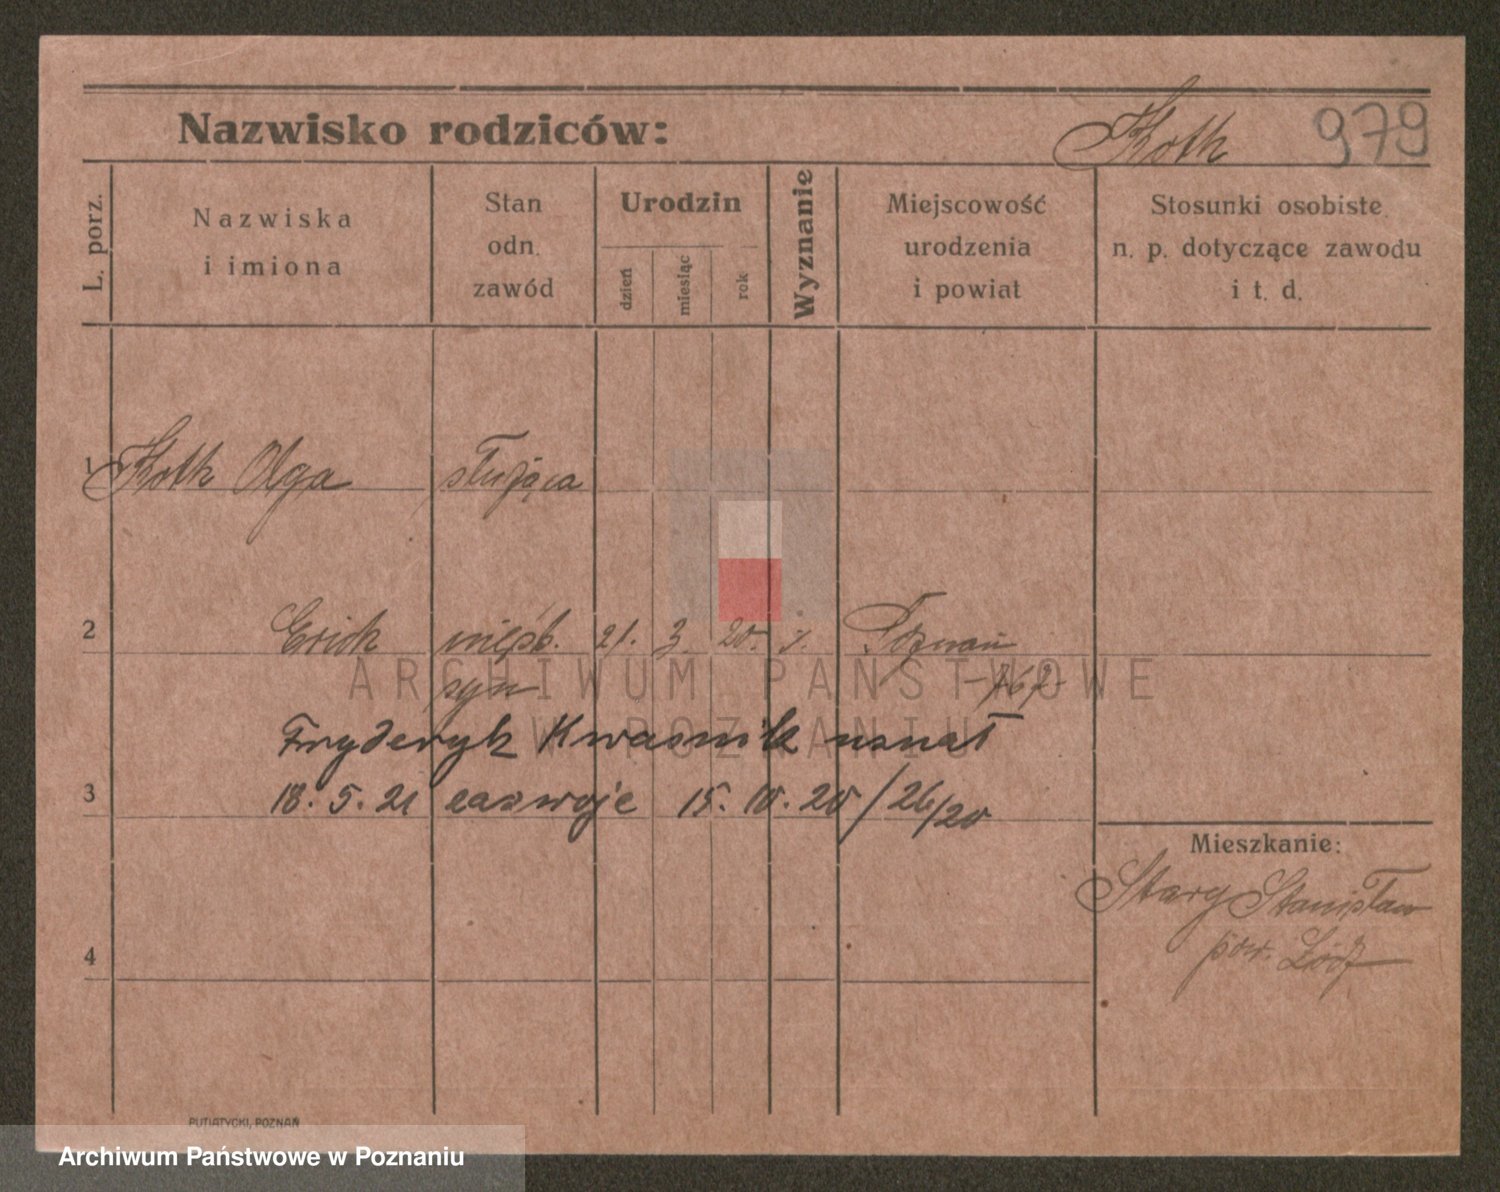 Nazwisko rodziców: Koth 979
L. porz.
Nazwiska
i imiona
Stan
odn.
zawód
Urodzin
dzień
miesiąc
rok
Wyznanie
Miejscowość
urodzenia
i powiat
Stosunki osobiste
n. p. dotyczące zawodu
i t. d.
1 Koth Olga służąca
2 Erich nieśb. 21. 3. 20. Poznań
syn -767-
Fryderyk Kwasnik uznał
3 18. 5. 21 15. 10. 20/26/20
Mieszkanie:
Starg Stanisław
pow. Łódź
4
PUTIATYCKI, POZNAŃ
ARCHIWUM PAŃSTWOWE
W POZNANIU
Archiwum Państwowe w Poznaniu